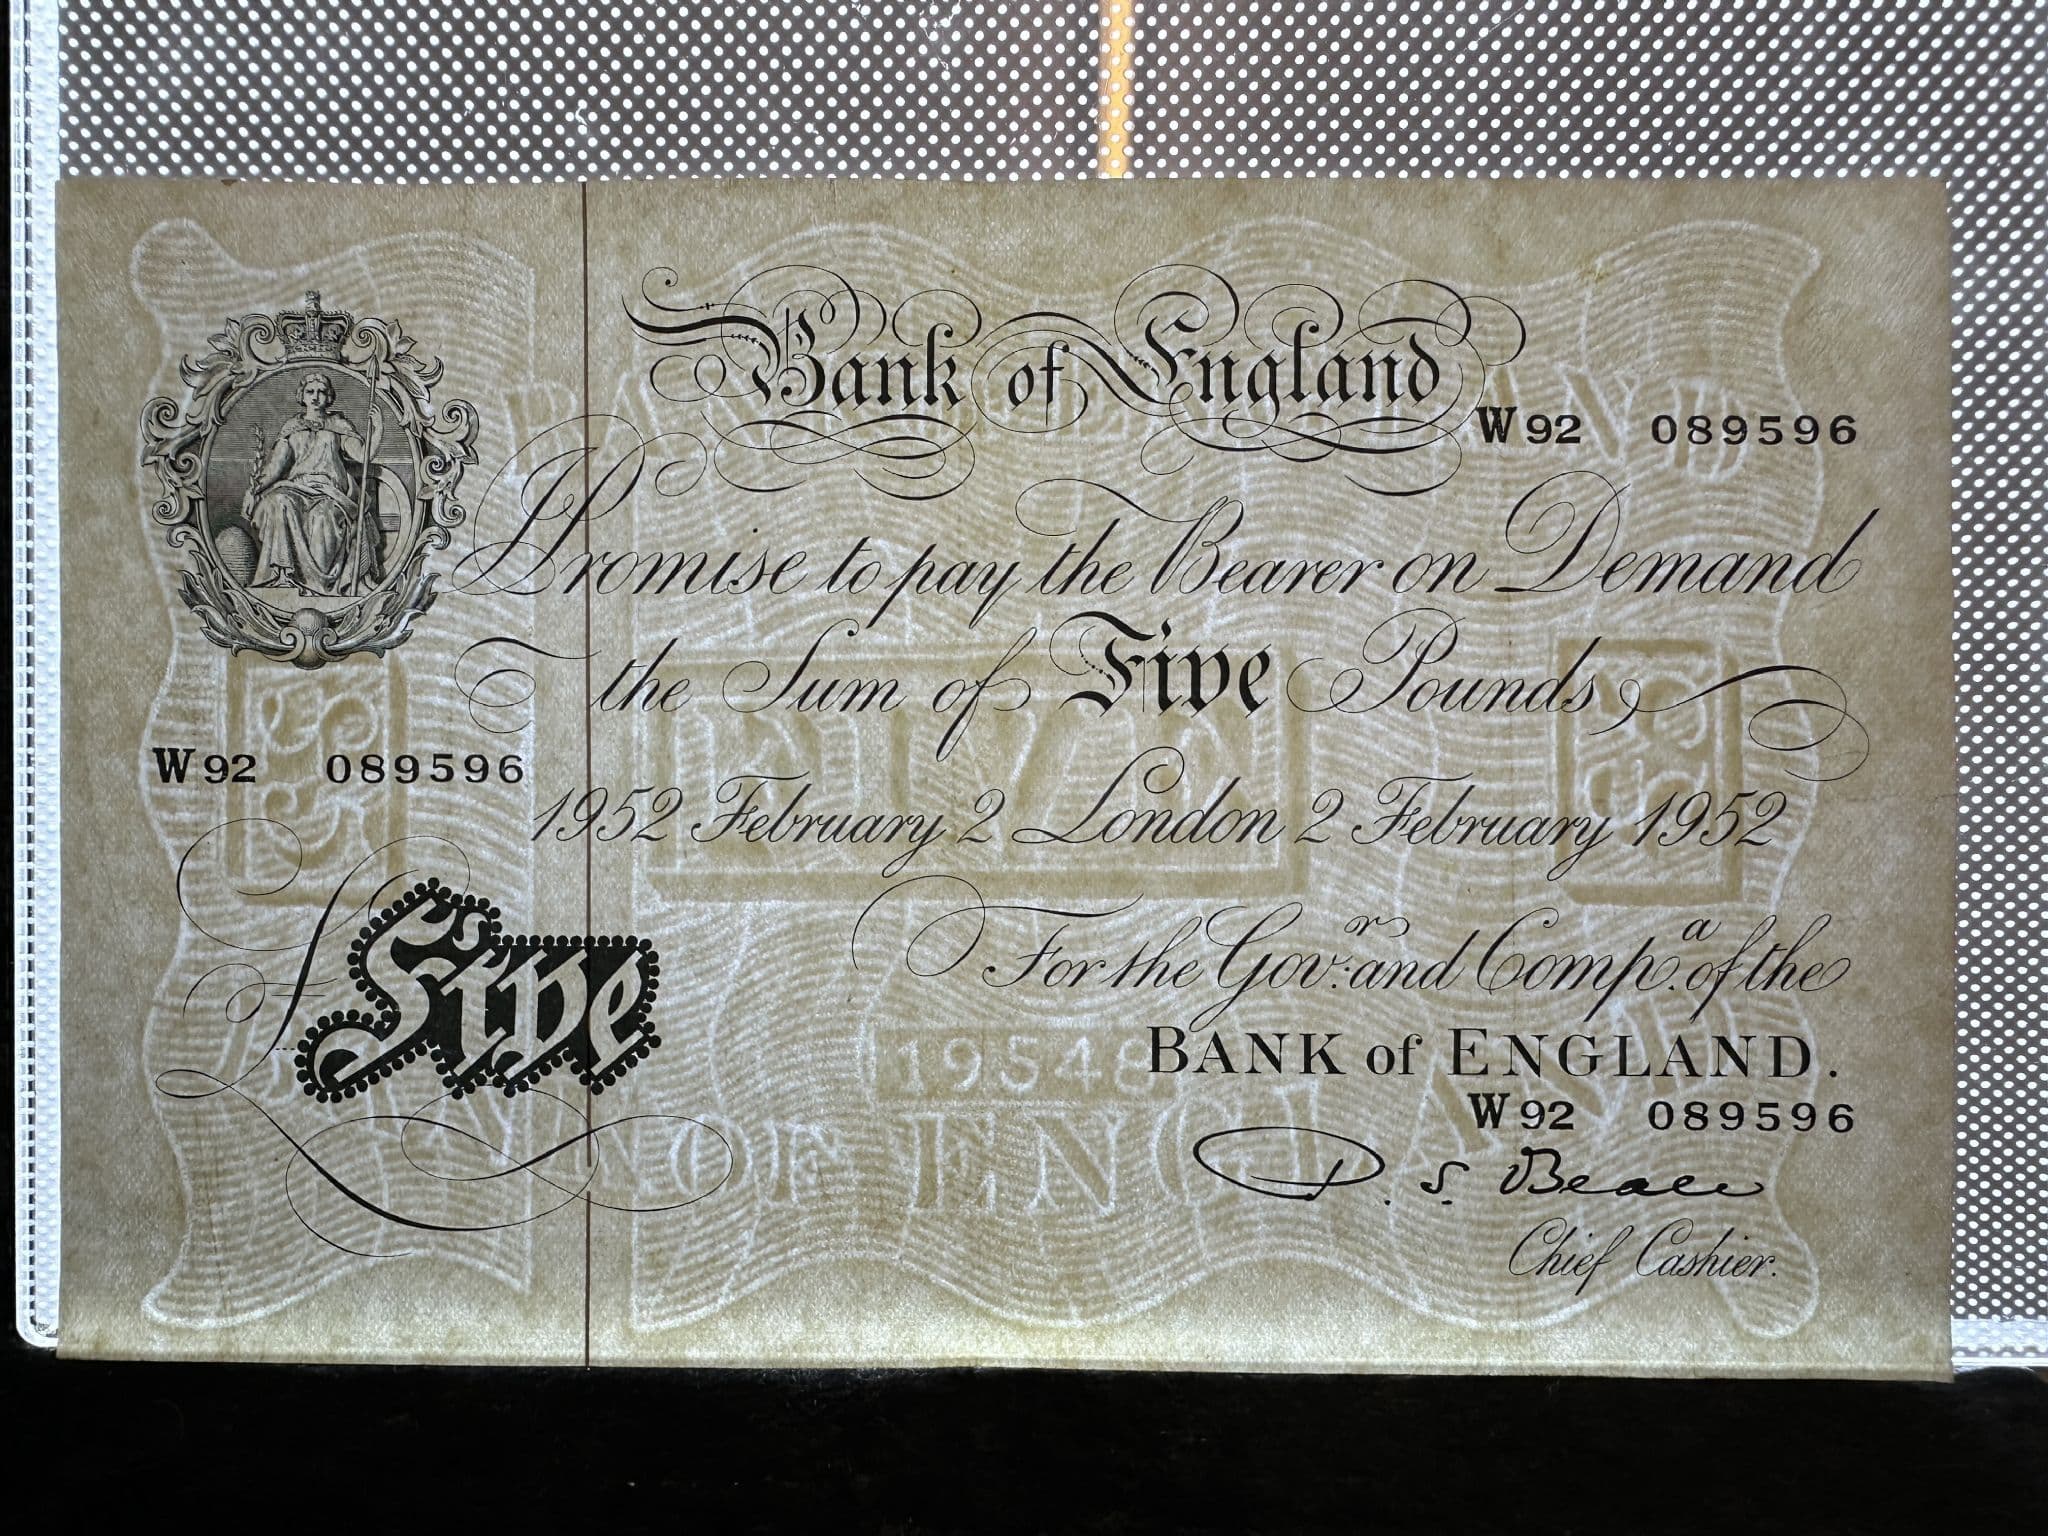 Bank of England
W92 089596
I Promise to pay the Bearer on Demand
the Sum of Five Pounds
W92 089596
1952 February 2 London 2 February 1952
£Five
For the Govr. and Compa. of the
BANK of ENGLAND.
W92 089596
Chief Cashier.
FIVE
BANK OF ENGLAND